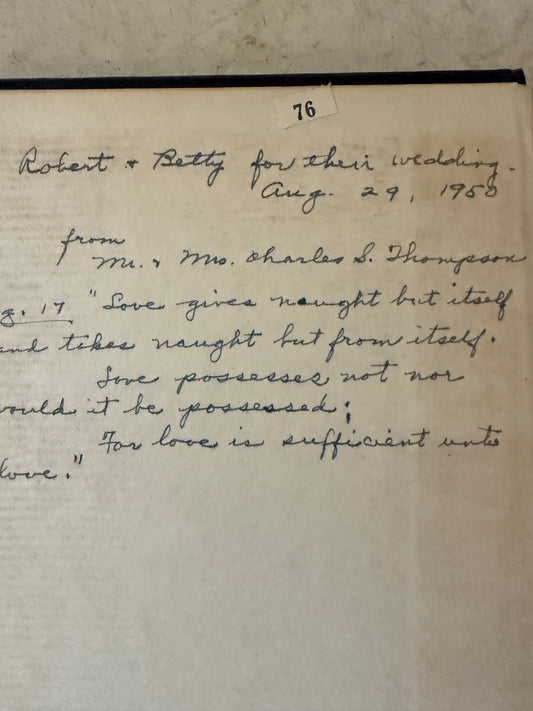 76
Robert & Betty for their wedding.
Aug. 29, 1950
from
Mr. & Mrs. Charles S. Thompson
g. 17 "Love gives naught but itself
and takes naught but from itself.
Love possesses not nor
would it be possessed;
For love is sufficient unto
love."